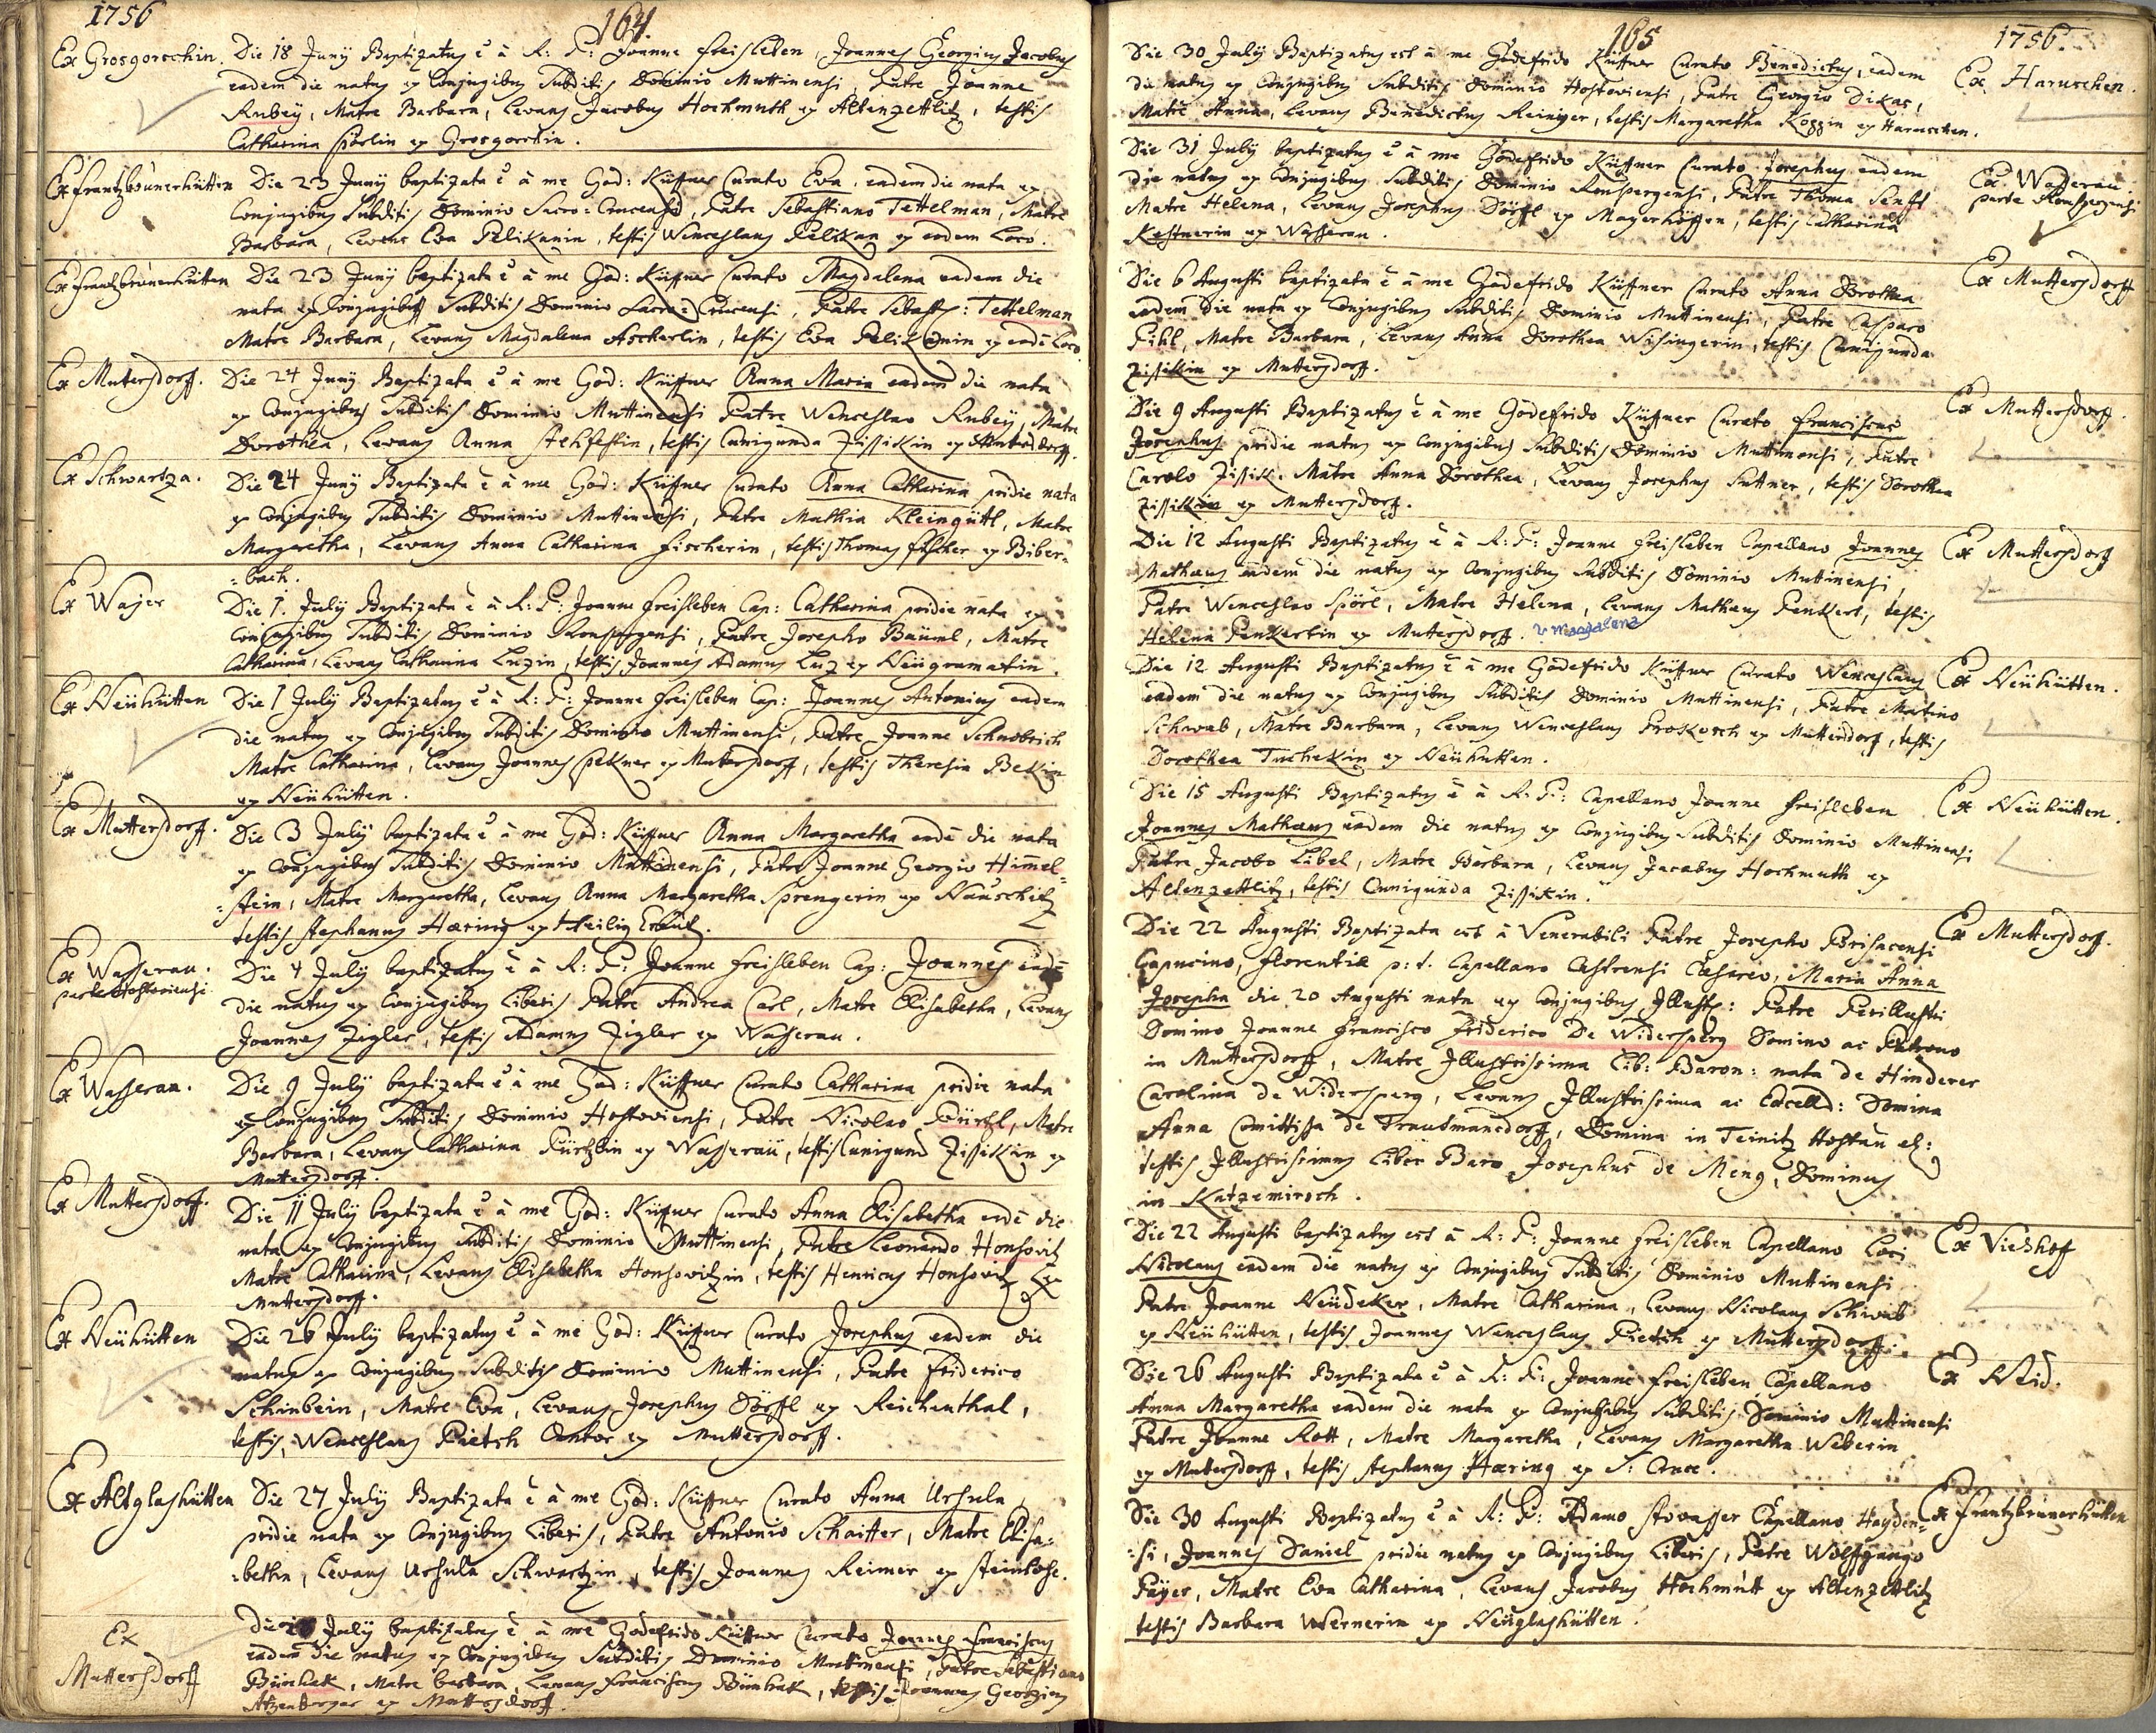 1756
164.
Ex Grosgorschin.
Die 18 Junÿ Baptizatus ē à R: P: Joanne Freisleben, Joannes Georgius Jacobus
eadem die natus ex Conjugibus Subditis Dominio Muttinensi, Patre Joanne
Rubeÿ, Matre Barbara, Levans Jacobus Hochmuth ex Altenzettlitz, testis
Catharina Spörlin ex Grosgorschin.
Ex Frantzbrunerhütten
Die 23 Junÿ baptizata ē à me God: Küffner Curato Eva, eadem die nata ex
Conjugibus Subditis Dominio Sacro-Crucensi, Patre Sebastiano Tettelman, Matre
Barbara, Levans Eva Pelikanin, testis Wenceslaus Pelikan ex eodem Loco.
Ex Frantzbrunerhütten
Die 23 Junÿ baptizata ē à me God: Küffner Curato Magdalena eadem die
nata ex Conjugibus Subditis Dominio Sacro-Crucensi, Patre Sebast: Tettelman
Matre Barbara, Levans Magdalena Ascherlin, testis Eva Pelikanin ex eodē Loco.
Ex Mutersdorff.
Die 24 Junÿ Baptizata ē à me God: Küffner Anna Maria eadem die nata
ex Conjugibus Subditis Dominio Muttinensi Patre Wenceslao Rubeÿ, Matre
Dorothea, Levans Anna, testis Cunigunda Zissikin ex Mutersdorff.
Ex Schwartza.
Die 24 Junÿ Baptizata ē à me God: Küffner Curato Anna Catharina pridie nata
ex Conjugibus Subditis Dominio Muttinensi, Patre Mathia Kleingütl, Matre
Margaretha, Levans Anna Catharina Fischerin, testis Thomas Fischer ex Biber-
-bach.
Ex Wajer
Die 1. Julÿ Baptizata ē à R: P: Joanne Freisleben Cap: Catharina pridie nata ex
Conjugibus Subditis Dominio Ronspergensi, Patre Josepho Bäuml, Matre
Catharina, Levans Catharina Luzin, testis Joannes Adamus Luz ex Neügramatin.
Ex Neühütten
Die 1 Julÿ Baptizatus ē à R: P: Joanne Freisleben Cap: Joannes Antonius eadem
die natus ex Conjugibus Subditis Dominio Muttinensi, Patre Joanne Schnobrich
Matre Catharina, Levans Joannes Pekner ex Mutersdorff, testis Theresia Bekin
ex Neühütten.
Ex Muttersdorff.
Die 3 Julÿ baptizata ē à me God: Küffner Anna Margaretha eadē die nata
ex Conjugibus Subditis Dominio Muttinensi, Patre Joanne Georgio Himmel=
=stein, Matre Margaretha, Levans Anna Margaretha Sprengerin ex Nauschitz
testis Stephanus Hæring ex Heilig Creutz.
Ex Wasserau.
parte Hostoviensi
Die 4 Julÿ baptizatus ē à R: P: Joanne Freisleben Cap: Joannes eadē
die natus ex Conjugibus Liberis Patre Andrea Carl, Matre Elisabetha, Levans
Joannes Zigler, testis Adamus Zigler ex Wasserau.
Ex Wasserau.
Die 9 Julÿ baptizata ē à me God: Küffner Curato Catharina pridie nata
ex Conjugibus Subditis Dominio Hostoviensi, Patre Nicolao Pürchl, Matre
Barbara, Levans Catharina Pürchlin ex Wasserau, testis Cunigund Zissikin ex
Muttersdorff.
Ex Muttersdorff.
Die 11 Julÿ baptizata ē à me God: Küffner Curato Anna Elisabetha eadē die
nata ex Conjugibus Subditis Dominio Muttinensi, Patre Leonardo Honsovitz
Matre Catharina, Levans Elisabetha Honsovitzin, testis Henricus Honsovitz Ex
Muttersdorff.
Ex Neühütten
Die 26 Julÿ baptizatus ē à me God: Küffner Curato Josephus eadem die
natus ex Conjugibus Subditis Dominio Muttinensi, Patre Friderico
Schinbein, Matre Eva, Levans Josephus Dörffl ex Reichenthal,
testis Wenceslaus Pietsch Cantor ex Muttersdorff.
Ex Altglashütten
Die 27 Julÿ Baptizata ē à me God: Küffner Curato Anna Ursula,
pridie nata ex Conjugibus Liberis, Patre Antonio Schaitter, Matre Elisa-
-betha, Levans Ursula Schwartzin, testis Joannes Reimer ex Steinlohe.
Ex
Muttersdorff
Die Julÿ baptizatus ē à me Godefrido Küffner Curato Joannes Franciscus
eadem die natus ex Conjugibus Subditis Dominio Muttinensi, Patre Sebastiano
Bünhak, Matre barbara, Levans Franciscus Bünhak, testis Joannes Georgius
Atzenberger ex Muttersdorff.
165
1756
Die 30 Julÿ Baptizatus est à me Godefrido Küffner Curato Benedictus, eadem
die natus ex Conjugibus Subditis Dominio Hostoviensi, Patre Georgio Dikas,
Matre Anna, Levans Benedictus Reiniger, testis Margaretha Koppin ex Haruschen.
Ex Haruschen.
Die 31 Julÿ baptizatus ē à me Godefrido Küffner Curato Josephus eadem
die natus ex Conjugibus Subditis Dominio Ronspergensi, Patre Thoma Senft
Matre Helena, Levans Josephus Dörffl ex Mayerhöffen, testis Catharina
Kestnerin ex Wasserau.
Ex Wasserau
parte Ronspergensi
Die 6 Augusti baptizata ē à me Godefrido Küffner Curato Anna Dorothea
eadem die nata ex Conjugibus Subditis Dominio Muttinensi, Patre Casparo
Pihl, Matre Barbara, Levans Anna Dorothea Wisingerin, testis Cunigunda
Zissikin ex Muttersdorff.
Ex Muttersdorff
Die 9 Augusti Baptizatus ē à me Godefrido Küffner Curato Franciscus
Josephus pridie natus ex Conjugibus Subditis Dominio Muttinensi, Patre
Carolo Zissik, Matre Anna Dorothea, Levans Josephus Suttner, testis Dorothea
Zissikin ex Muttersdorff.
Ex Muttersdorff.
Die 12 Augusti Baptizatus ē à R: P: Joanne Freisleben Capellano Joannes
Mathæus eadem die natus ex Conjugibus Subditis Dominio Muttinensi
Patre Wenceslao Spörl, Matre Helena, Levans Mathæus Penkert, testis
Helena Penkertin ex Muttersdorff. v Magdalena
Ex Muttersdorff
Die 12 Augusti Baptizatus ē à me Godefrido Küffner Curato Wenceslaus
eadem die natus ex Conjugibus Subditis Dominio Muttinensi, Patre Martino
Schwab, Matre Barbara, Levans Wenceslaus Proskosch ex Muttersdorf, testis
Dorothea Tuchekin ex Neühütten.
Ex Neühütten.
Die 15 Augusti Baptizatus ē à R: P: Capellano Joanne Freisleben
Joannes Mathæus eadem die natus ex Conjugibus Subditis Dominio Muttinensi
Patre Jacobo Libel, Matre Barbara, Levans Jacobus Hochmuth ex
Altenzettlitz, testis Cunigunda Zissikin.
Ex Neühütten.
Die 22 Augusti Baptizata est à Venerabili Patre Josepho Brisacensi
Capucino, Florentiæ p: t. Capellano Castrensi Cæsareo, Maria Anna
Josepha die 20 Augusti nata ex Conjugibus Illustr: Patre Perillustri
Domino Joanne Francisco Friderico De Widersperg Domino ac Patrono
in Muttersdorff, Matre Illustrissima Lib: Baron: nata de Hinderer
Carolina de Widersperg, Levans Illustrissima ac Excell: Domina
Anna Comitissa de Trautmansdorff, Domina in Teinitz Hostau etc:
testis Illustrissimus Liber Baro Josephus de Meng, Dominus
in Katzemirsch.
Ex Muttersdorff.
Die 22 Augusti baptizatus est à R: P: Joanne Freisleben Capellano Loci
Nicolaus eadem die natus ex Conjugibus Subditis Dominio Muttinensi
Patre Joanne Neudeker, Matre Catharina, Levans Nicolaus Schwab
ex Neühütten, testis Joannes Wenceslaus Pietsch ex Muttersdorff.
Ex Viehhoff
Die 26 Augusti Baptizata ē à R: P: Joanne Freisleben Capellano
Anna Margaretha eadem die nata ex Conjugibus Subditis Dominio Muttinensi
Patre Joanne Rott, Matre Margaretha, Levans Margaretha Weberin
ex Mutersdorff, testis Stephanus Hæring ex S: Cruce.
Ex Neid.
Die 30 Augusti Baptizatus ē à R: P: Adamo Stowasser Capellano Hayden-
-si, Joannes Daniel pridie natus ex Conjugibus Liberis, Patre Wolffgango
Payer, Matre Eva Catharina, Levans Jacobus Hochmutt ex Altenzettlitz
testis Barbara Wernerin ex Neüglashütten.
Ex Frantzbrunerhütten